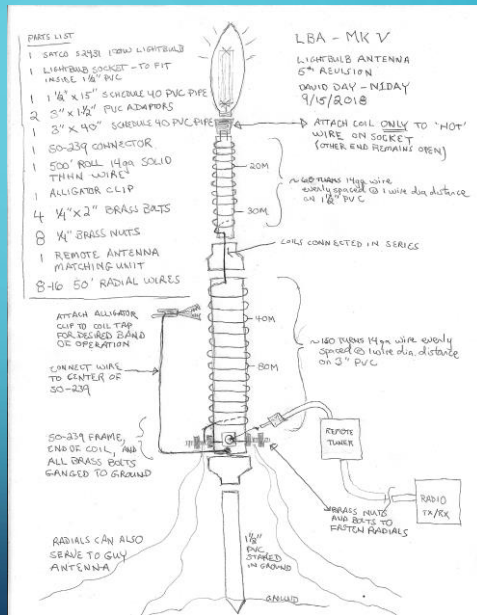 PARTS LIST
1 SATCO S2431 100W LIGHTBULB
1 LIGHTBULB SOCKET - TO FIT
INSIDE 1 1/2" PVC
1 1 1/2" x 15" SCHEDULE 40 PVC PIPE
2 3" x 1 1/2" PVC ADAPTORS
1 3" x 40" SCHEDULE 40 PVC PIPE
1 SO-239 CONNECTOR
1 500' ROLL 14ga SOLID
THHN WIRE
1 ALLIGATOR CLIP
4 1/4" x 2" BRASS BOLTS
8 1/4" BRASS NUTS
1 REMOTE ANTENNA
MATCHING UNIT
8-16 50' RADIAL WIRES
LBA - MK V
LIGHTBULB ANTENNA
5th REVISION
DAVID DAY - N1DAY
9/15/2018
ATTACH COIL ONLY TO "HOT"
WIRE ON SOCKET
(OTHER END REMAINS OPEN)
20M
30M
~ 60 TURNS 14ga wire
evenly spaced @ 1 wire dia. distance
on 1 1/2" PVC
COILS CONNECTED IN SERIES
ATTACH ALLIGATOR
CLIP TO COIL TAP
FOR DESIRED BAND
OF OPERATION
40M
80M
~ 160 TURNS 14ga wire evenly
spaced @ 1 wire dia. distance
on 3" PVC
CONNECT WIRE
TO CENTER OF
SO-239
SO-239 FRAME,
END OF COIL, AND
ALL BRASS BOLTS
GANGED TO GROUND
REMOTE
TUNER
RADIO
TX/RX
BRASS NUTS
AND BOLTS TO
FASTEN RADIALS
RADIALS CAN ALSO
SERVE TO GUY
ANTENNA
PVC
STAKED
IN GROUND
GROUND